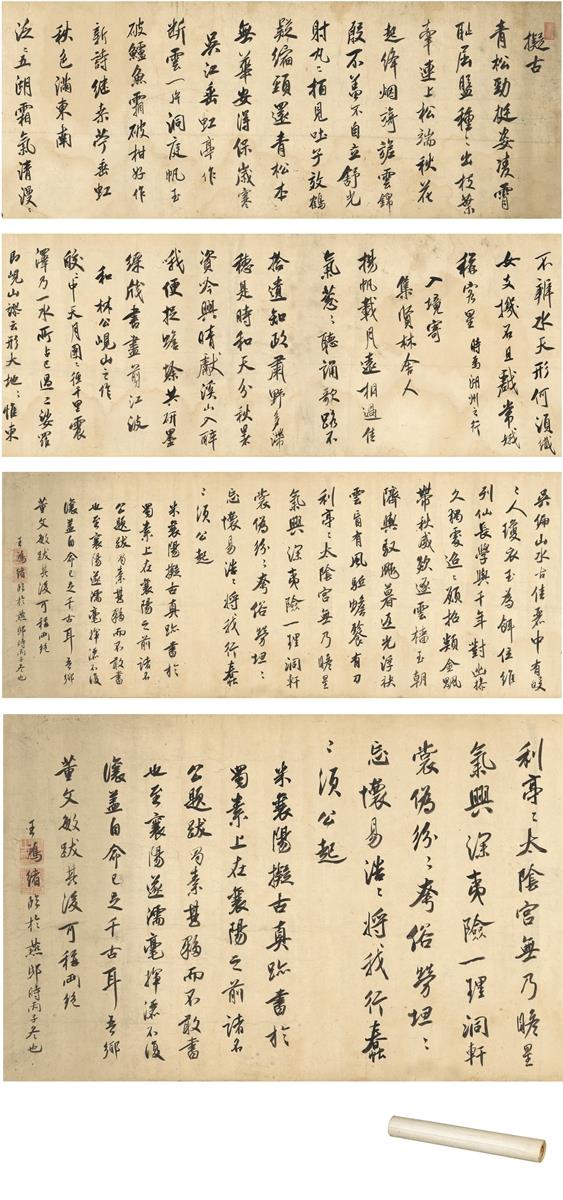 擬古
青松勁挺姿凌霄
耻屈盤種〻出枝葉
牽連上松端秋花
起絳烟旖旎雲錦
殷不羞不自立舒光
射丸〻柏見吐子效鶴
疑縮頸還青松本
無華安得保歲寒
吳江垂虹亭作
斷雲一片洞庭帆玉
破鱸魚霜破柑好作
新詩继桑苧垂虹
秋色滿東南
泛〻五湖霜氣清漫〻
不辨水天形何須織
女支機石且戲常娥
稱客星 時為湖州之行
入境寄
集賢林舍人
揚帆載月遠相過佳
氣葱〻聽誦歌路不
拾遺知政肅野多滯
穗是時和天分秋暑
資吟興晴獻溪山入醉
哦便捉蟾蜍共研墨
綵牋書盡剪江波
和 林公峴山之作
皎〻中天月團〻徑千里震
澤乃一水所占已過二娑羅
即峴山謬云形大地〻惟東
吳偏山水古佳麗中有皎
〻人瓊衣玉為餌位維
列仙長學與千年對幽操
久獨處迢〻願招類金飈
帶秋威欻逐雲檣至朝
隮輿馭飈暮返光浮袂
雲盲有風驅蟾餮有刀
利亭〻太陰宮無乃瞻星
氣興深夷險一理洞軒
裳偽紛〻夸俗勞坦〻
忘懷易浩〻將我行蠢
〻須公起
米襄陽擬古真跡書於
蜀素上在襄陽之前諸名
公題跋蜀素甚夥而不敢書
也至襄陽遂濡毫揮洒不復
讓蓋自命已足千古耳吾鄉
董文敏跋其後可稱兩絕
王鴻緒臨於燕邸時丙子冬也
利亭〻太陰宮無乃瞻星
氣興深夷險一理洞軒
裳偽紛〻夸俗勞坦〻
忘懷易浩〻將我行蠢
〻須公起
米襄陽擬古真跡書於
蜀素上在襄陽之前諸名
公題跋蜀素甚夥而不敢書
也至襄陽遂濡毫揮洒不復
讓蓋自命已足千古耳吾鄉
董文敏跋其後可稱兩絕
王鴻緒臨於燕邸時丙子冬也